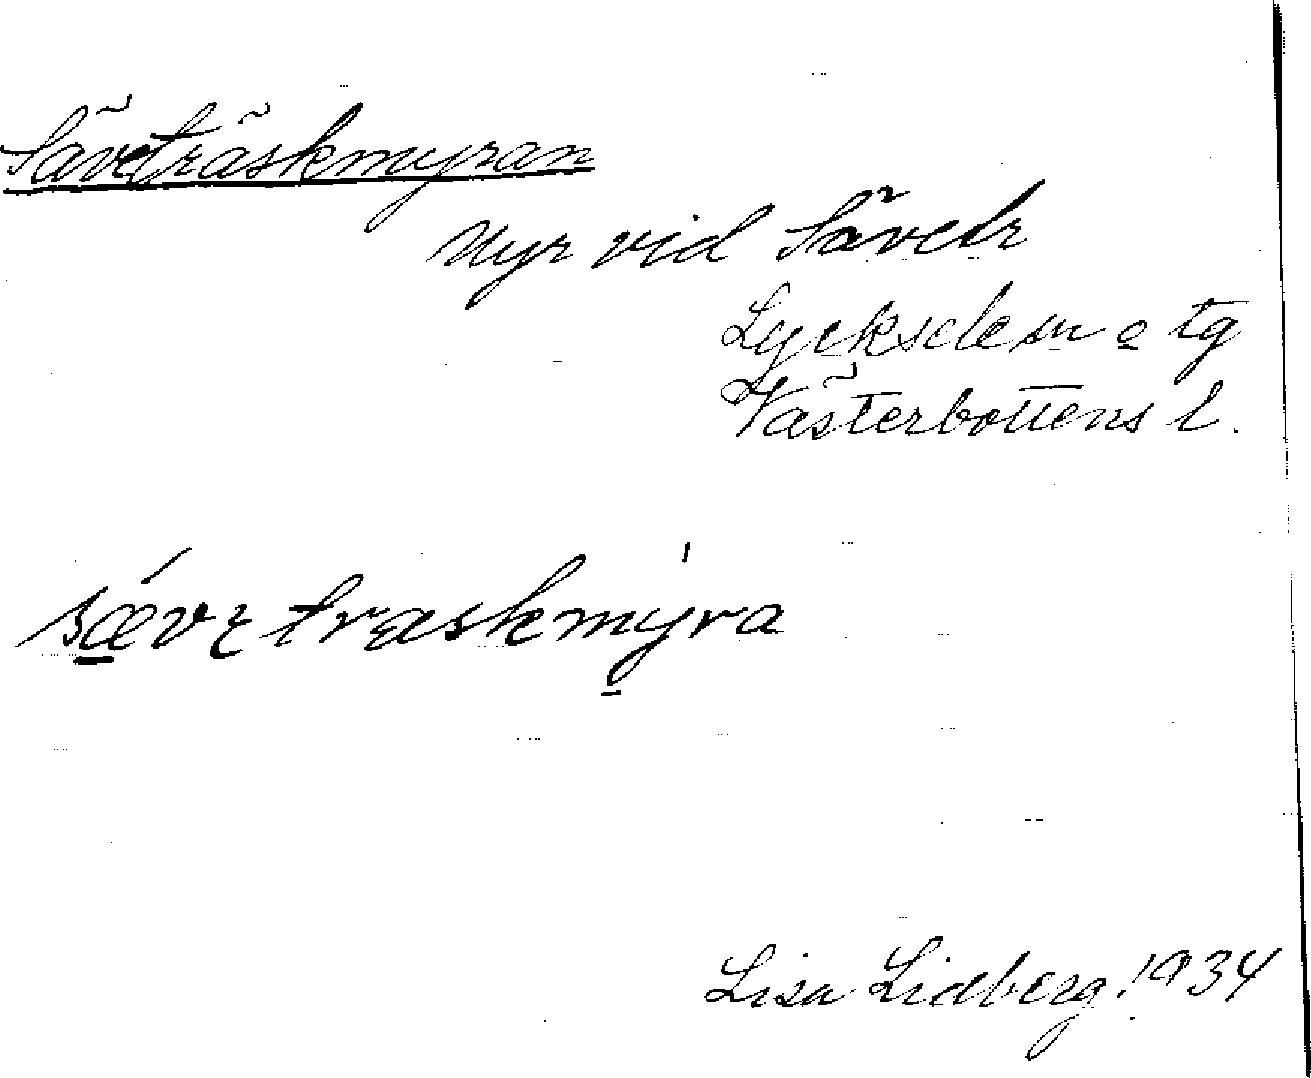 Säveträskmyran
Myr vid Sävetr
Lycksele sn o tg
Västerbottens l.
sævetræskmyra
Lisa Lidberg. 1934